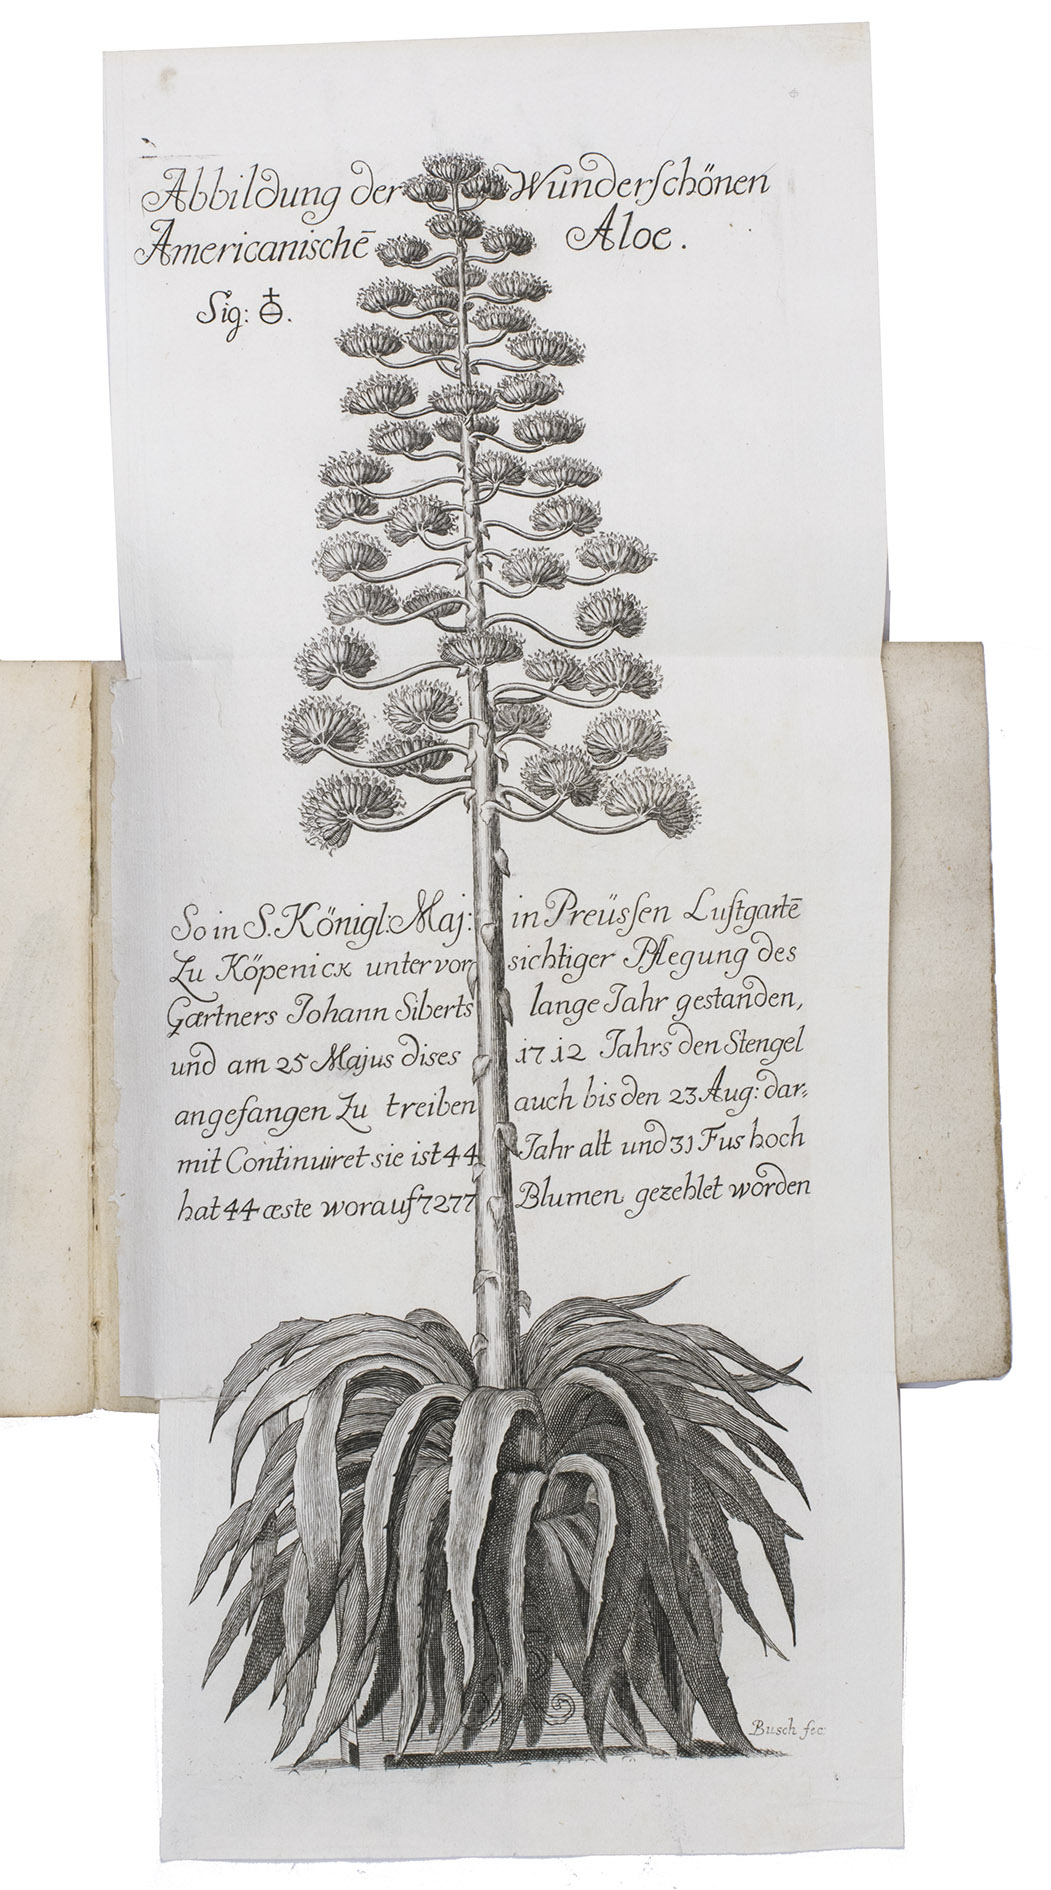 Abbildung der Wunderſchönen
Americanischē Aloe.
Sig: ♁.
So in S. Königl: Maj: in Preüsſen Luſtgartē
Zu Köpenicĸ unter vorsichtiger Pflegung des
Gærtners Johann Siberts lange Jahr gestanden,
und am 25 Majus dises 1712 Jahrs den Stengel
angefangen Zu treiben auch bis den 23 Aug: dar⸗
mit Continuiret sie ist 44 Jahr alt und 31 Fus hoch
hat 44 æste worauf 7277 Blumen gezehlet worden
Busch fec: